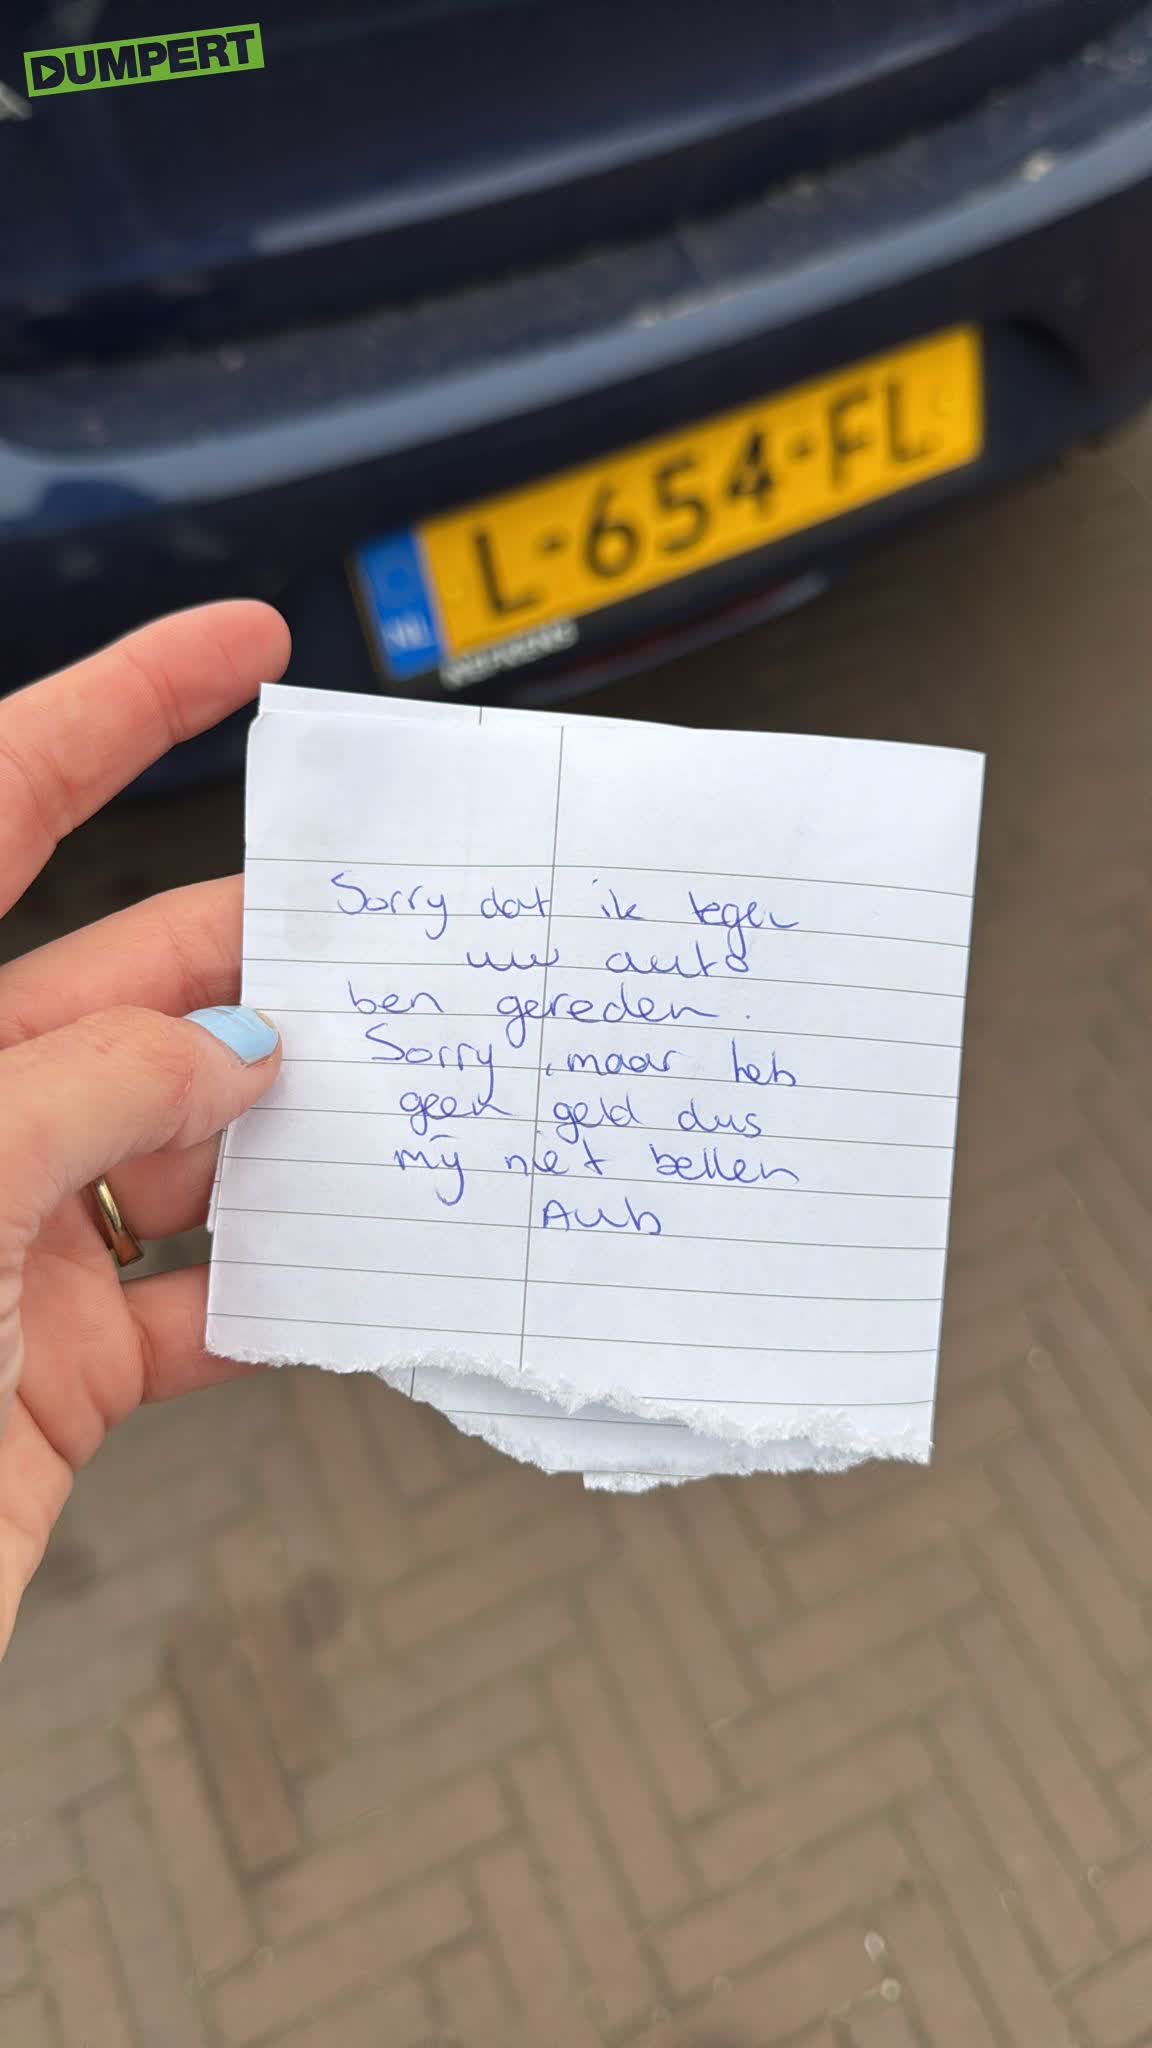 DUMPERT
L-654-FL
NL
Sorry dat ik tegen
uw auto
ben gereden.
Sorry, maar heb
geen geld dus
mij niet bellen
Aub